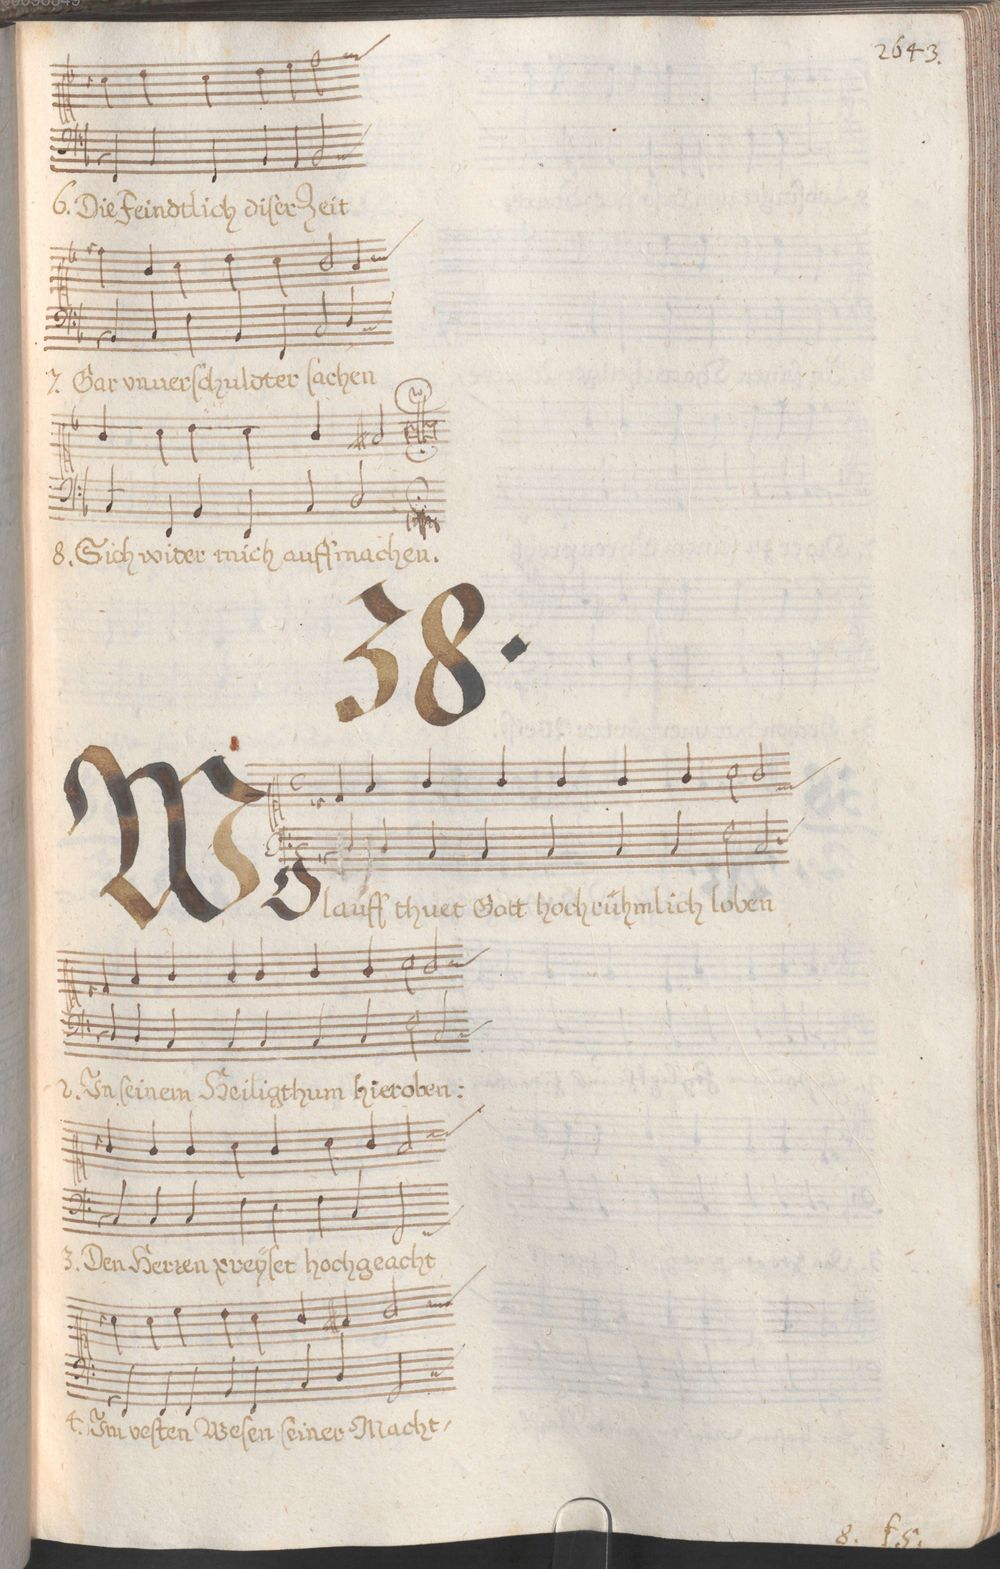 2643.
6. Die Feindtlich diser Zeit
7. Gar vnuerschuldter sachen
8. Sich wider mich auffmachen.
38.
Wolauff thuet Gott hochrühmlich loben
2. In seinem Heiligthum hieroben:
3. Den Herren preÿset hochgeacht
4. Im vesten Wesen seiner Macht,
8. f5.